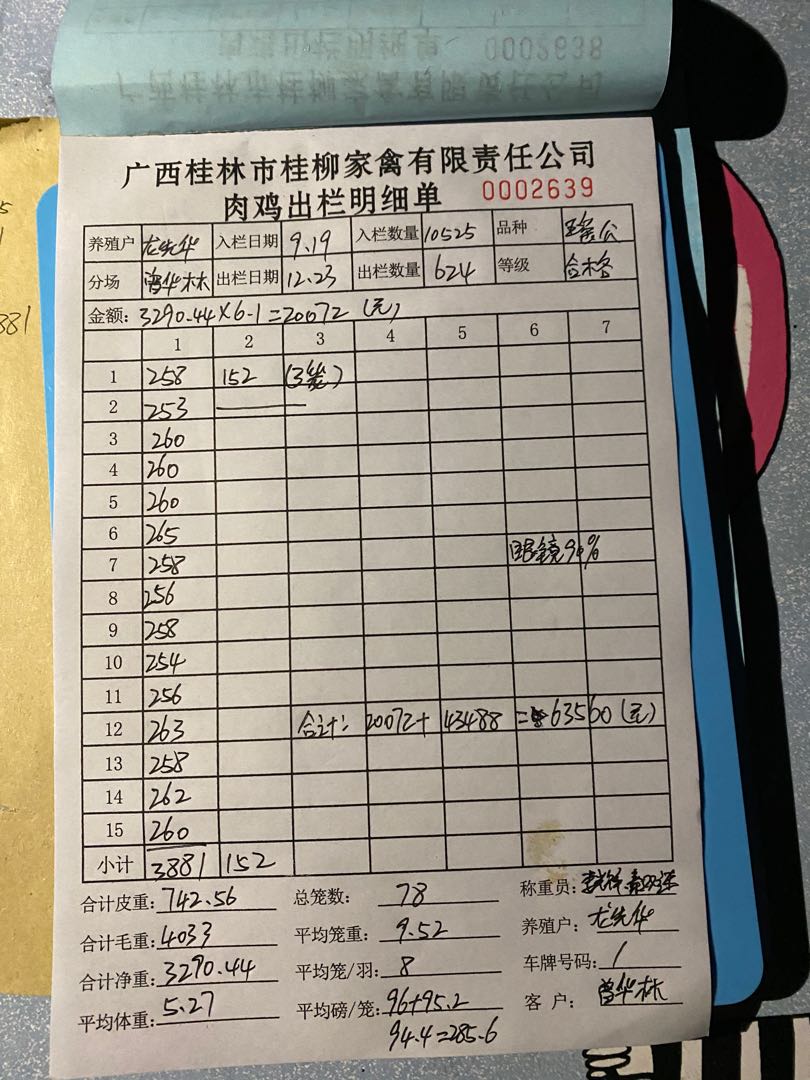 0002638
广西桂林市桂柳家禽有限责任公司
肉鸡出栏明细单 0002639
养殖户 龙先华 入栏日期 9.19 入栏数量 10525 品种
分场 曾华林 出栏日期 12.23 出栏数量 624 等级 合格
金额: 3290.44×6.1=20072 (元)
1 2 3 4 5 6 7
1 258 152 (3笼)
2 253
3 260
4 260
5 260
6 265
眼镜 %
7 258
8 256
9 258
10 254
11 256
12 263 合计: 20072+ 43488 = 63560 (元)
13 258
14 262
15 260
小计 3881 152
合计皮重: 742.56 总笼数: 78 称重员:
合计毛重: 4033 平均笼重: 9.52 养殖户: 龙先华
合计净重: 3290.44 平均笼/羽: 8 车牌号码: 1
平均体重: 5.27 平均磅/笼: 96+95.2 客 户: 曾华林
94.4=285.6
881